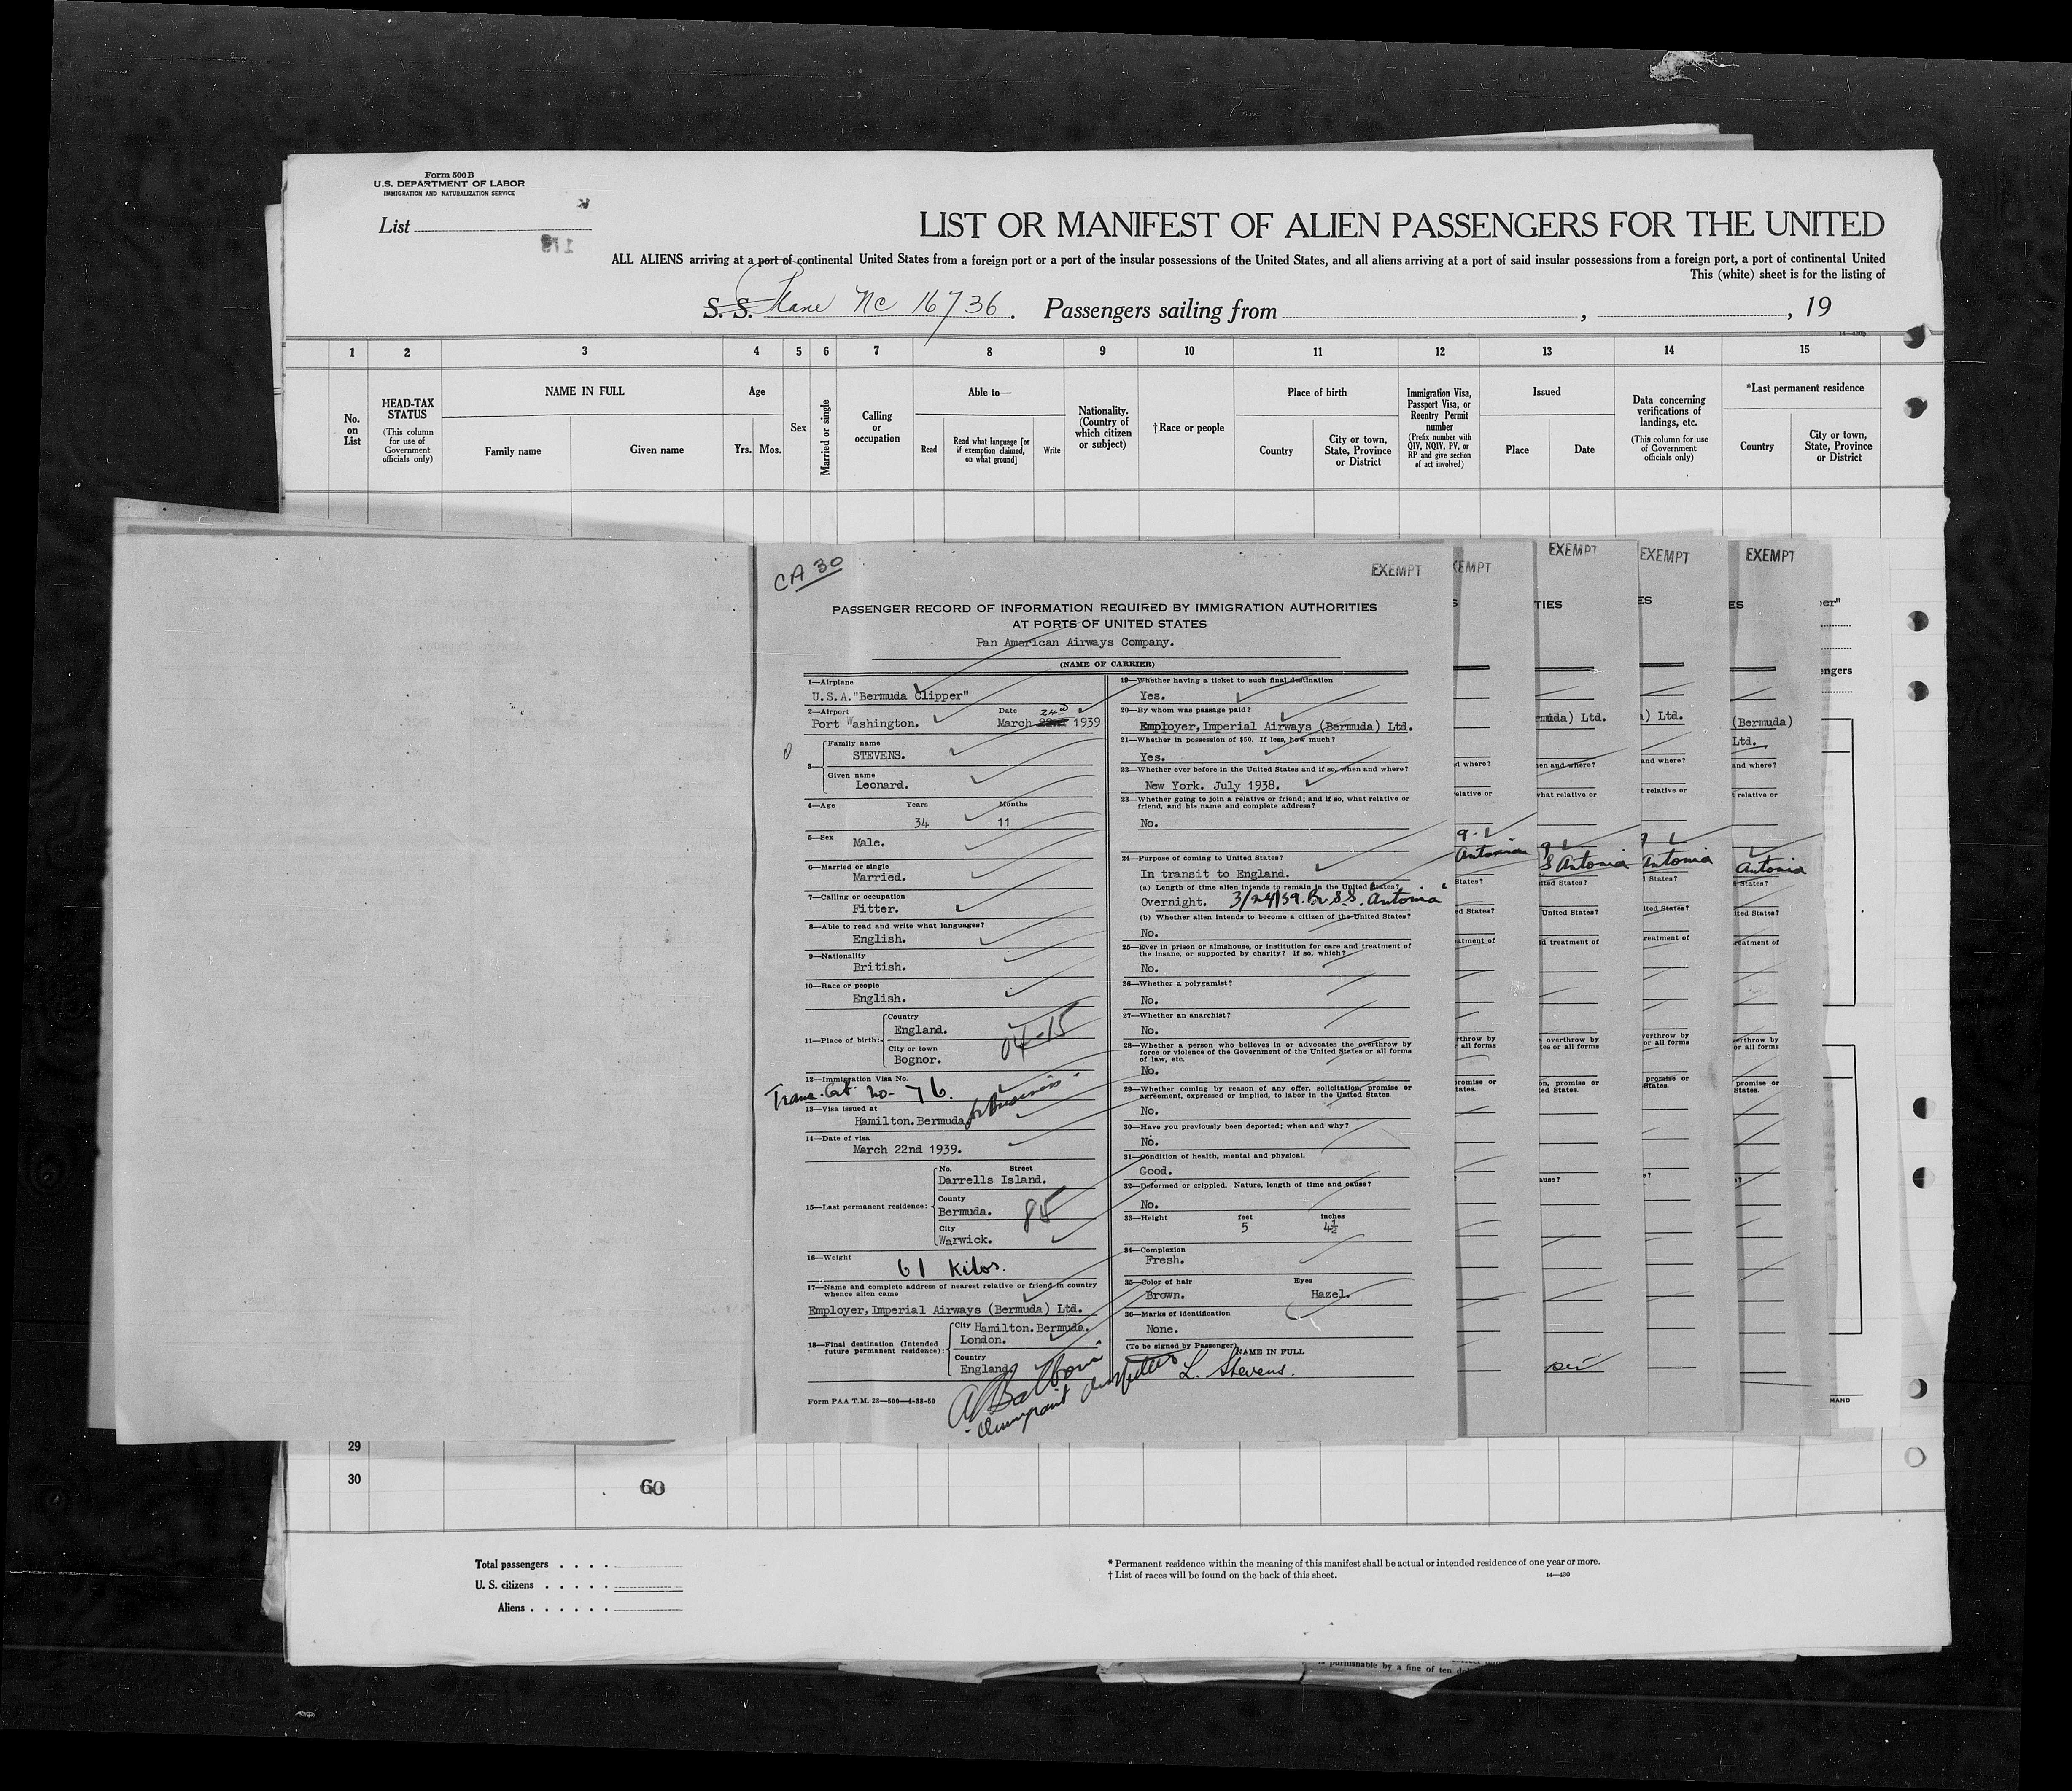 Form 500 B
U.S. DEPARTMENT OF LABOR
IMMIGRATION AND NATURALIZATION SERVICE
List
LIST OR MANIFEST OF ALIEN PASSENGERS FOR THE UNITED
ALL ALIENS arriving at a port of continental United States from a foreign port or a port of the insular possessions of the United States, and all aliens arriving at a port of said insular possessions from a foreign port, a port of continental United
This (white) sheet is for the listing of
S. S. Plane NC 16736. Passengers sailing from , , 19
14—430B
1 2 3 4 5 6 7 8 9 10 11 12 13 14 15
No. on List
HEAD-TAX STATUS
(This column for use of Government officials only)
NAME IN FULL
Family name
Given name
Age
Yrs. Mos.
Sex
Married or single
Calling or occupation
Able to—
Read
Read what language [or if exemption claimed, on what ground]
Write
Nationality. (Country of which citizen or subject)
†Race or people
Place of birth
Country
City or town, State, Province or District
Immigration Visa, Passport Visa, or Reentry Permit number
(Prefix number with QIV, NQIV, PV, or RP and give section of act involved)
Issued
Place
Date
Data concerning verifications of landings, etc.
(This column for use of Government officials only)
*Last permanent residence
Country
City or town, State, Province or District
CA 30
EXEMPT
PASSENGER RECORD OF INFORMATION REQUIRED BY IMMIGRATION AUTHORITIES
AT PORTS OF UNITED STATES
Pan American Airways Company.
(NAME OF CARRIER)
1—Airplane
U.S.A."Bermuda Clipper"
2—Airport Date 24th
Port Washington. March 22nd 1939
3—
Family name
STEVENS.
Given name
Leonard.
4—Age Years Months
34 11
5—Sex
Male.
6—Married or single
Married.
7—Calling or occupation
Fitter.
8—Able to read and write what languages?
English.
9—Nationality
British.
10—Race or people
English.
11—Place of birth:
Country
England.
City or town
Bognor.
04-15
12—Immigration Visa No.
Trans. Cert. no. 76.
for Business
13—Visa issued at
Hamilton.Bermuda
14—Date of visa
March 22nd 1939.
15—Last permanent residence:
No. Street
Darrells Island.
County
Bermuda.
City
Warwick.
85
16—Weight
61 Kilos.
17—Name and complete address of nearest relative or friend in country
whence alien came
Employer,Imperial Airways (Bermuda) Ltd.
18—Final destination (Intended
future permanent residence):
City Hamilton.Bermuda.
London.
Country
England.
Form PAA T.M. 28—500—4-38-50
Immigrant Inspector
19—Whether having a ticket to such final destination
Yes.
20—By whom was passage paid?
Employer,Imperial Airways (Bermuda) Ltd.
21—Whether in possession of $50. If less, how much?
Yes.
22—Whether ever before in the United States and if so, when and where?
New York. July 1938.
23—Whether going to join a relative or friend; and if so, what relative or
friend, and his name and complete address?
No.
24—Purpose of coming to United States?
In transit to England.
(a) Length of time alien intends to remain in the United States?
Overnight. 3/24/39. Br. S.S. Antonia
(b) Whether alien intends to become a citizen of the United States?
No.
25—Ever in prison or almshouse, or institution for care and treatment of
the insane, or supported by charity? If so, which?
No.
26—Whether a polygamist?
No.
27—Whether an anarchist?
No.
28—Whether a person who believes in or advocates the overthrow by
force or violence of the Government of the United States or all forms
of law, etc.
No.
29—Whether coming by reason of any offer, solicitation, promise or
agreement, expressed or implied, to labor in the United States.
No.
30—Have you previously been deported; when and why?
No.
31—Condition of health, mental and physical.
Good.
32—Deformed or crippled. Nature, length of time and cause?
No.
33—Height feet inches
5 4½
34—Complexion
Fresh.
35—Color of hair Eyes
Brown. Hazel.
36—Marks of identification
None.
(To be signed by Passenger) NAME IN FULL
L. Stevens.
EXEMPT
EXEMPT
EXEMPT
Antonia
S Antonia
Antonia
Antonia
29
30
60
Total passengers
U. S. citizens
Aliens
* Permanent residence within the meaning of this manifest shall be actual or intended residence of one year or more.
† List of races will be found on the back of this sheet.
14—430